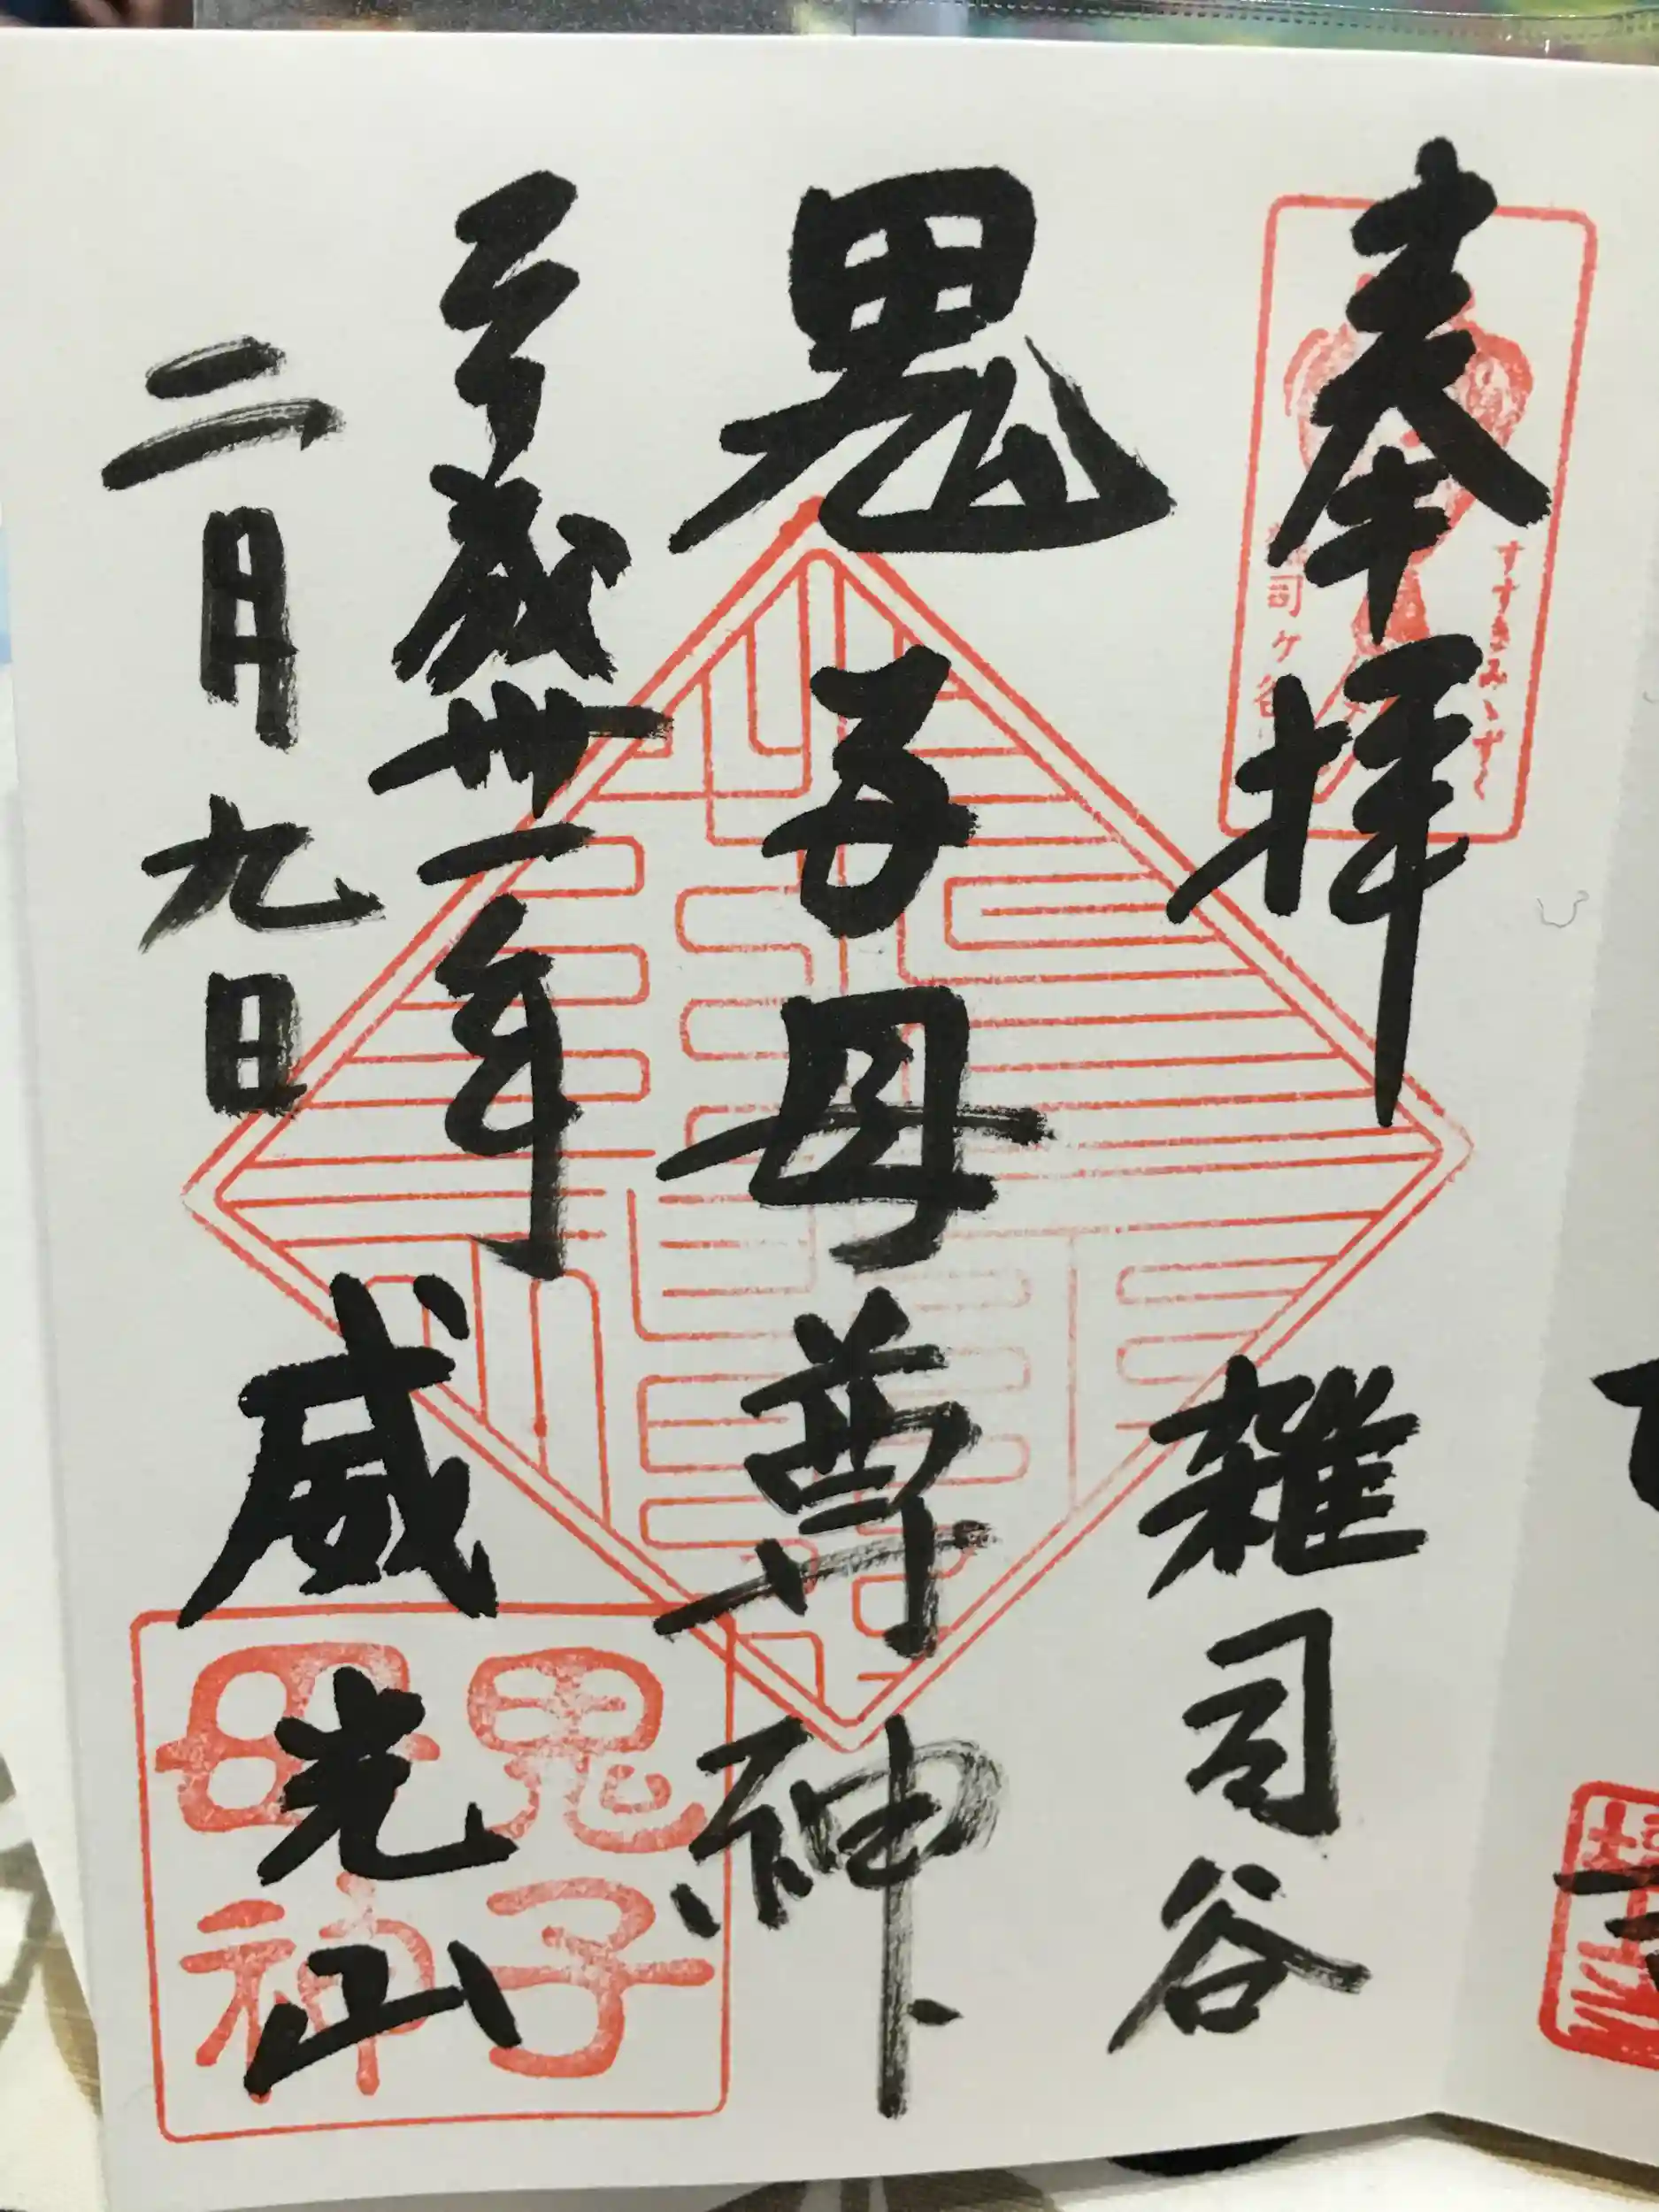 奉拝
雑司谷
鬼子母尊神
平成卅一年
二月九日
威光山
すすきみゝずく
司ヶ谷
鬼子
母神